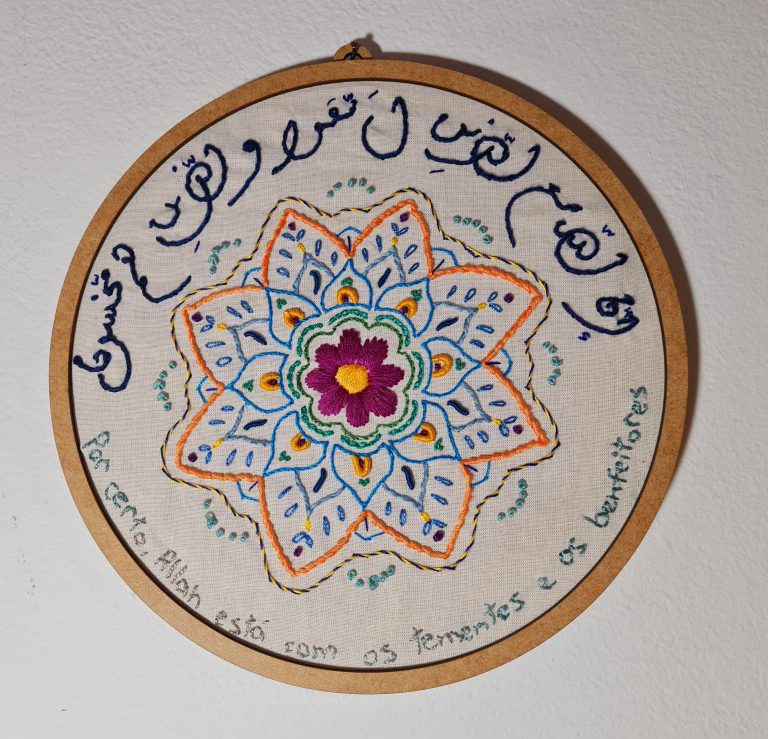 إنّ اللّه مع الّذينِ اَتّقوا و الّذينِ هم مّحسنون
Por certo, Allah está com os tementes e os benfeitores